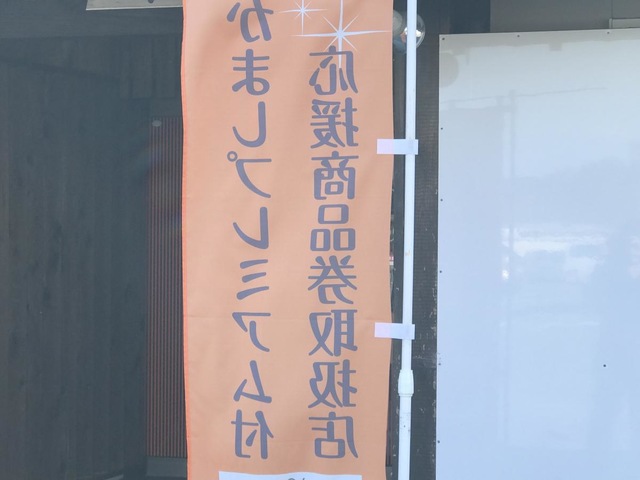 かましプレミアム付
応援商品券取扱店